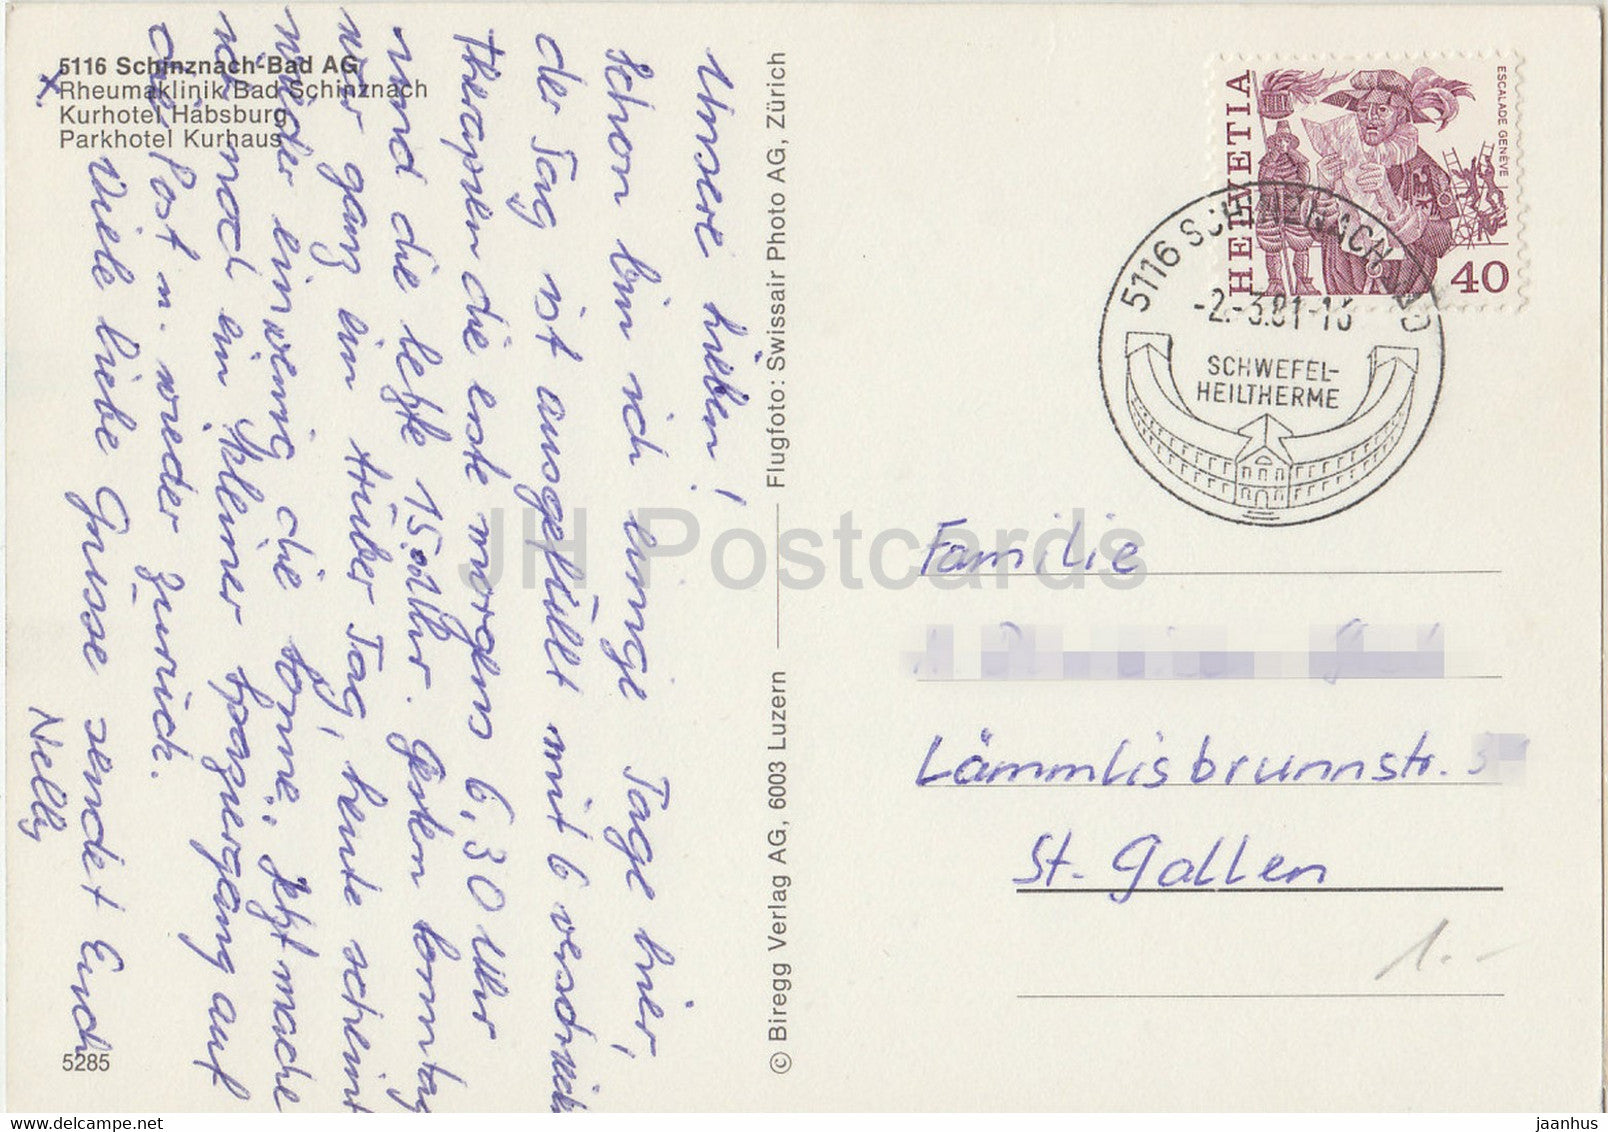 5116 Schinznach-Bad AG
Rheumaklinik Bad Schinznach
Kurhotel Habsburg
Parkhotel Kurhaus
Unsere lieben!
Schon bin ich einige Tage hier,
der Tag ist ausgefüllt mit 6 versch
Therapien die erste morgens 6,30 Uhr
und die letzte 15.00 Uhr. Gestern Sonntag
war ganz ein trüber Tag, heute scheint
wieder einwenig die Sonne. Jetzt mache
ich noch ein kleiner Spaziergang auf
die Post u. wieder zurück.
Viele liebe Grüsse sendet Euch
Nelly
5285
Flugfoto: Swissair Photo AG, Zürich
© Biregg Verlag AG, 6003 Luzern
HELVETIA
ESCALADE GENÈVE
40
5116 SCHINZNACH BAD
-2.-3.81-
SCHWEFEL-
HEILTHERME
Familie
Lämmlisbrunnstr.
St. Gallen
1.-
JH Postcards
delcampe.net
jaanhus